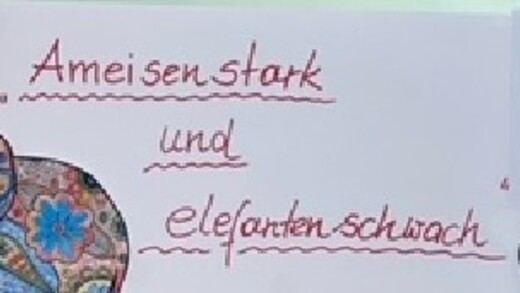 Ameisenstark
und
elefantenschwach